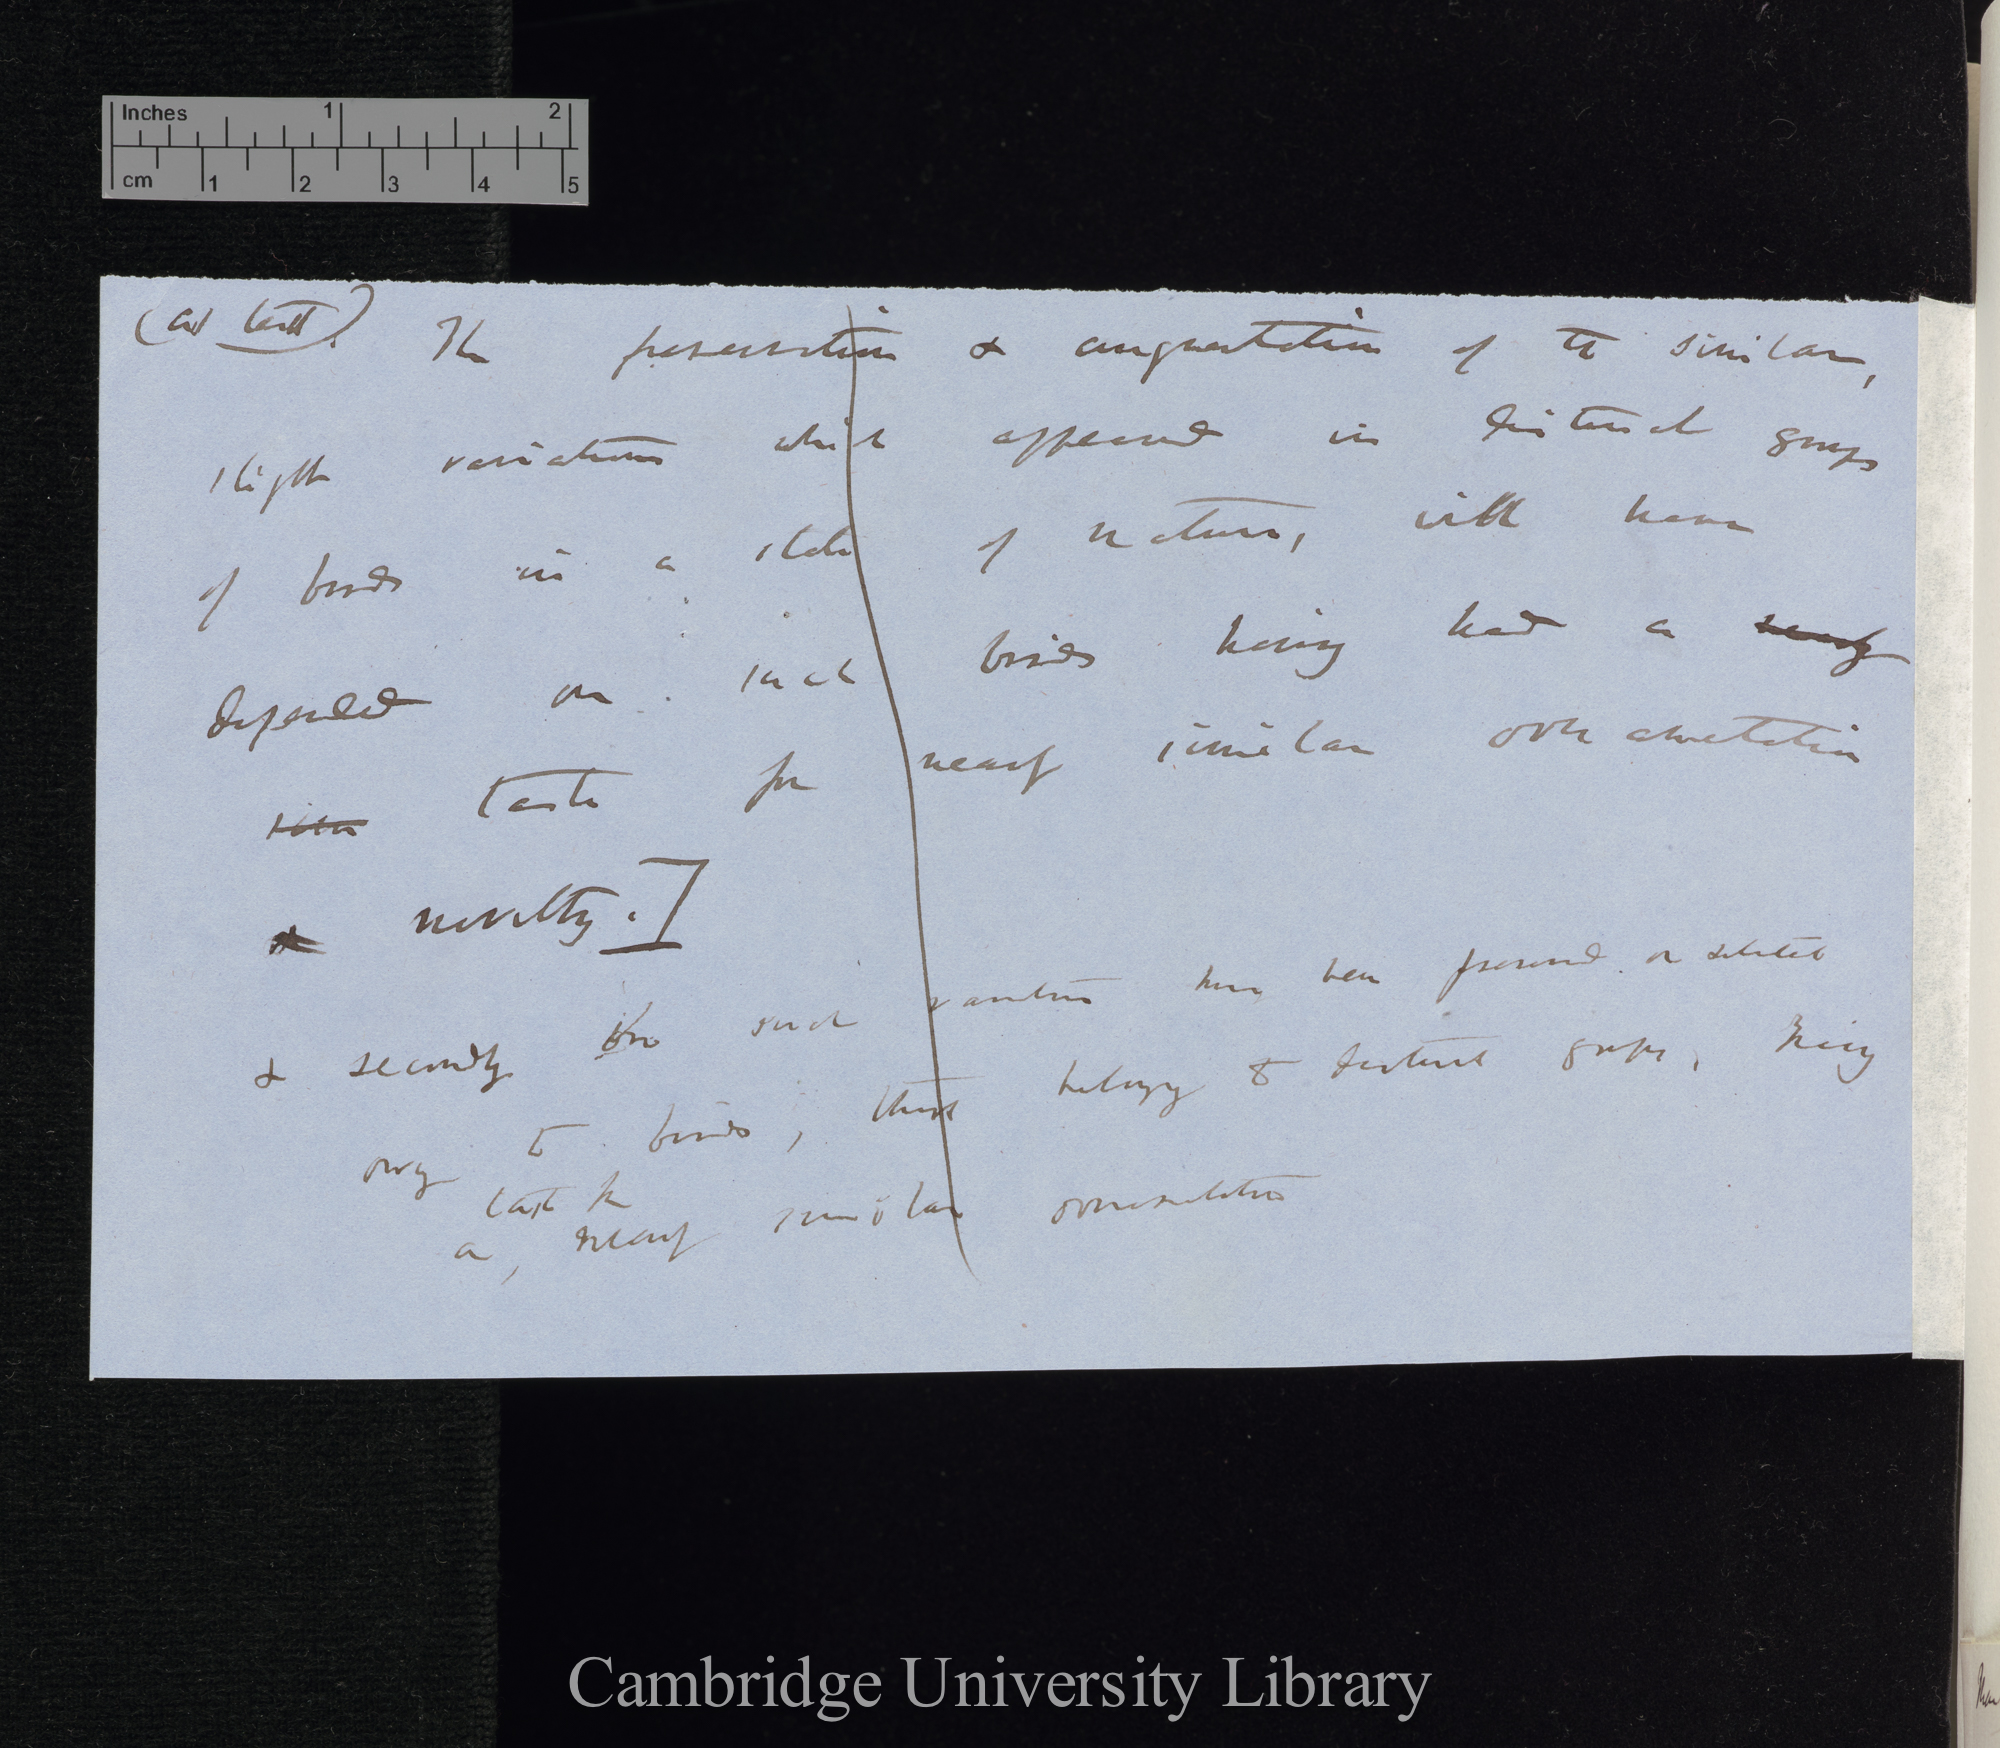 Inches 1 2
cm 1 2 3 4 5
(at last) The preservation & augmentation of the similar,
slight variations which appeared in distinct groups
of birds in a state of nature, will have
depended on such birds having had a nearly
taste for nearly similar ornamentation
& novelty.]
& secondly such variations have been preserved or selected
owing to birds, though belonging to distinct groups, having
taste for
a, nearly similar ornamentation
Cambridge University Library